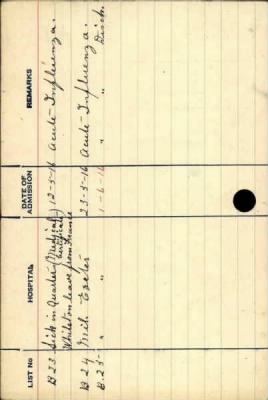 LIST No HOSPITAL DATE OF ADMISSION REMARKS
B 23 Sick in Quarters (Medical Certificate) 12-5-16 Acute Influenza.
Whilst on leave from France
B 24 Mil. Exeter 23-5-16 Acute Influenza.
B.23- " " 1-6-16 " " Disch.